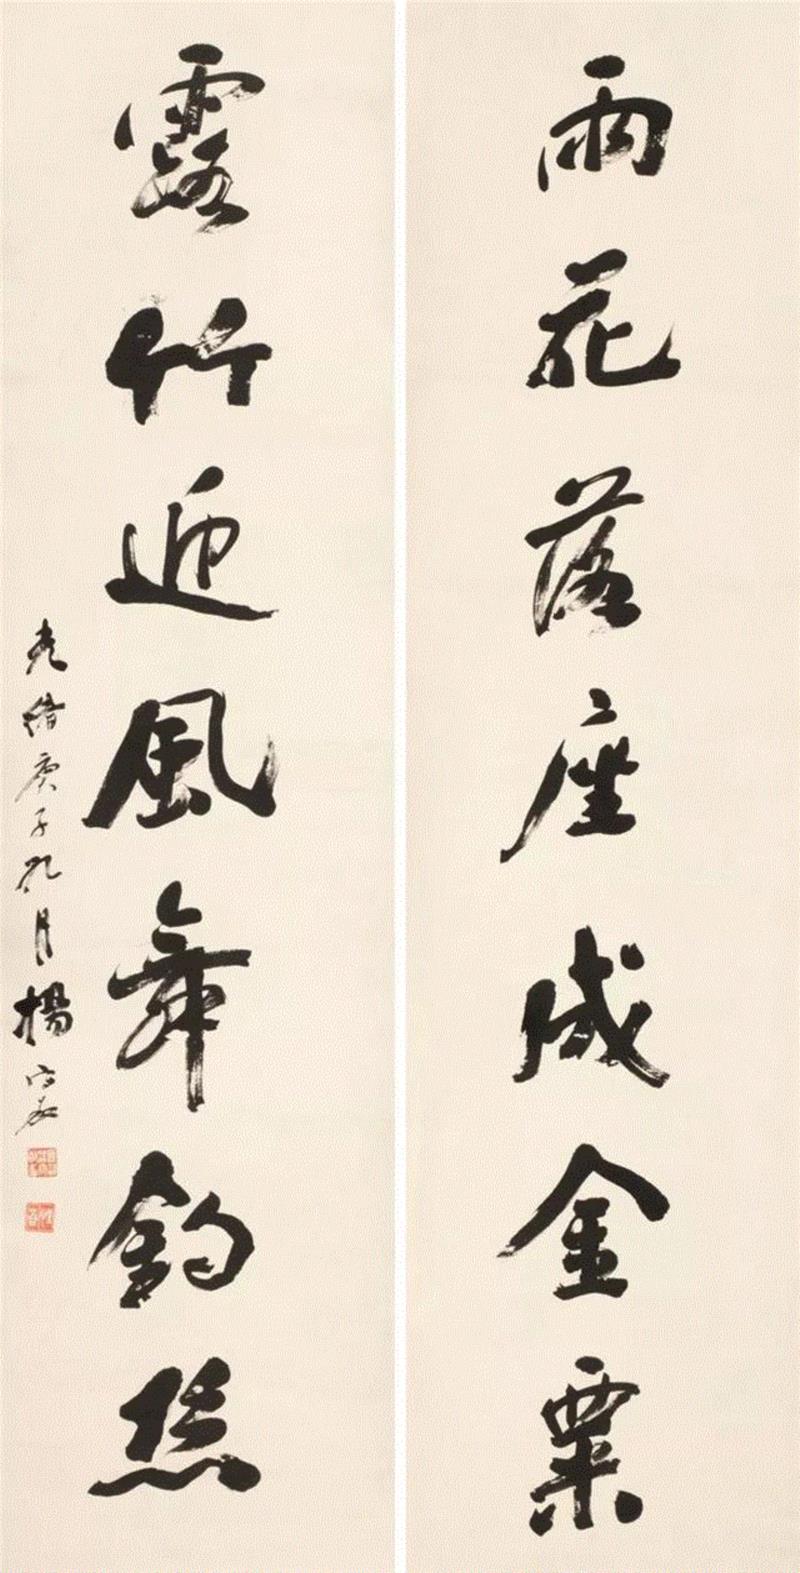 雨花落座成金粟
露竹迎風舞釣絲
光緒庚子九月楊守敬